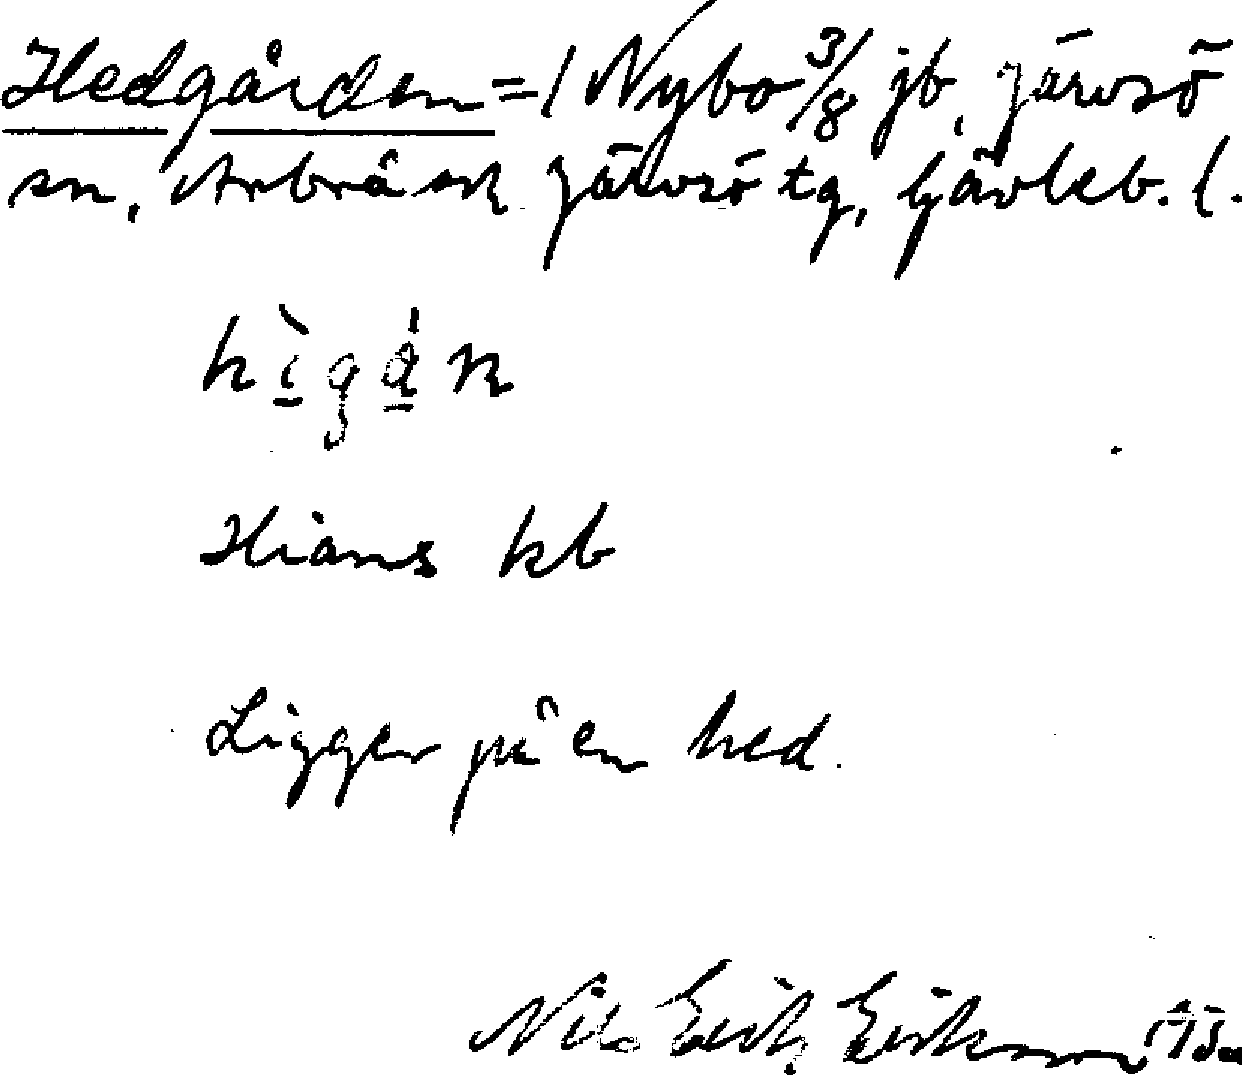 Hedgården = 1 Nybo 3/8 jb, Järvsö
sn, Arbrå och Järvsö tg, Gävleb. l.
hìgá̱n
Hians kb
Ligger på en hed.
Nils Erik Erikson